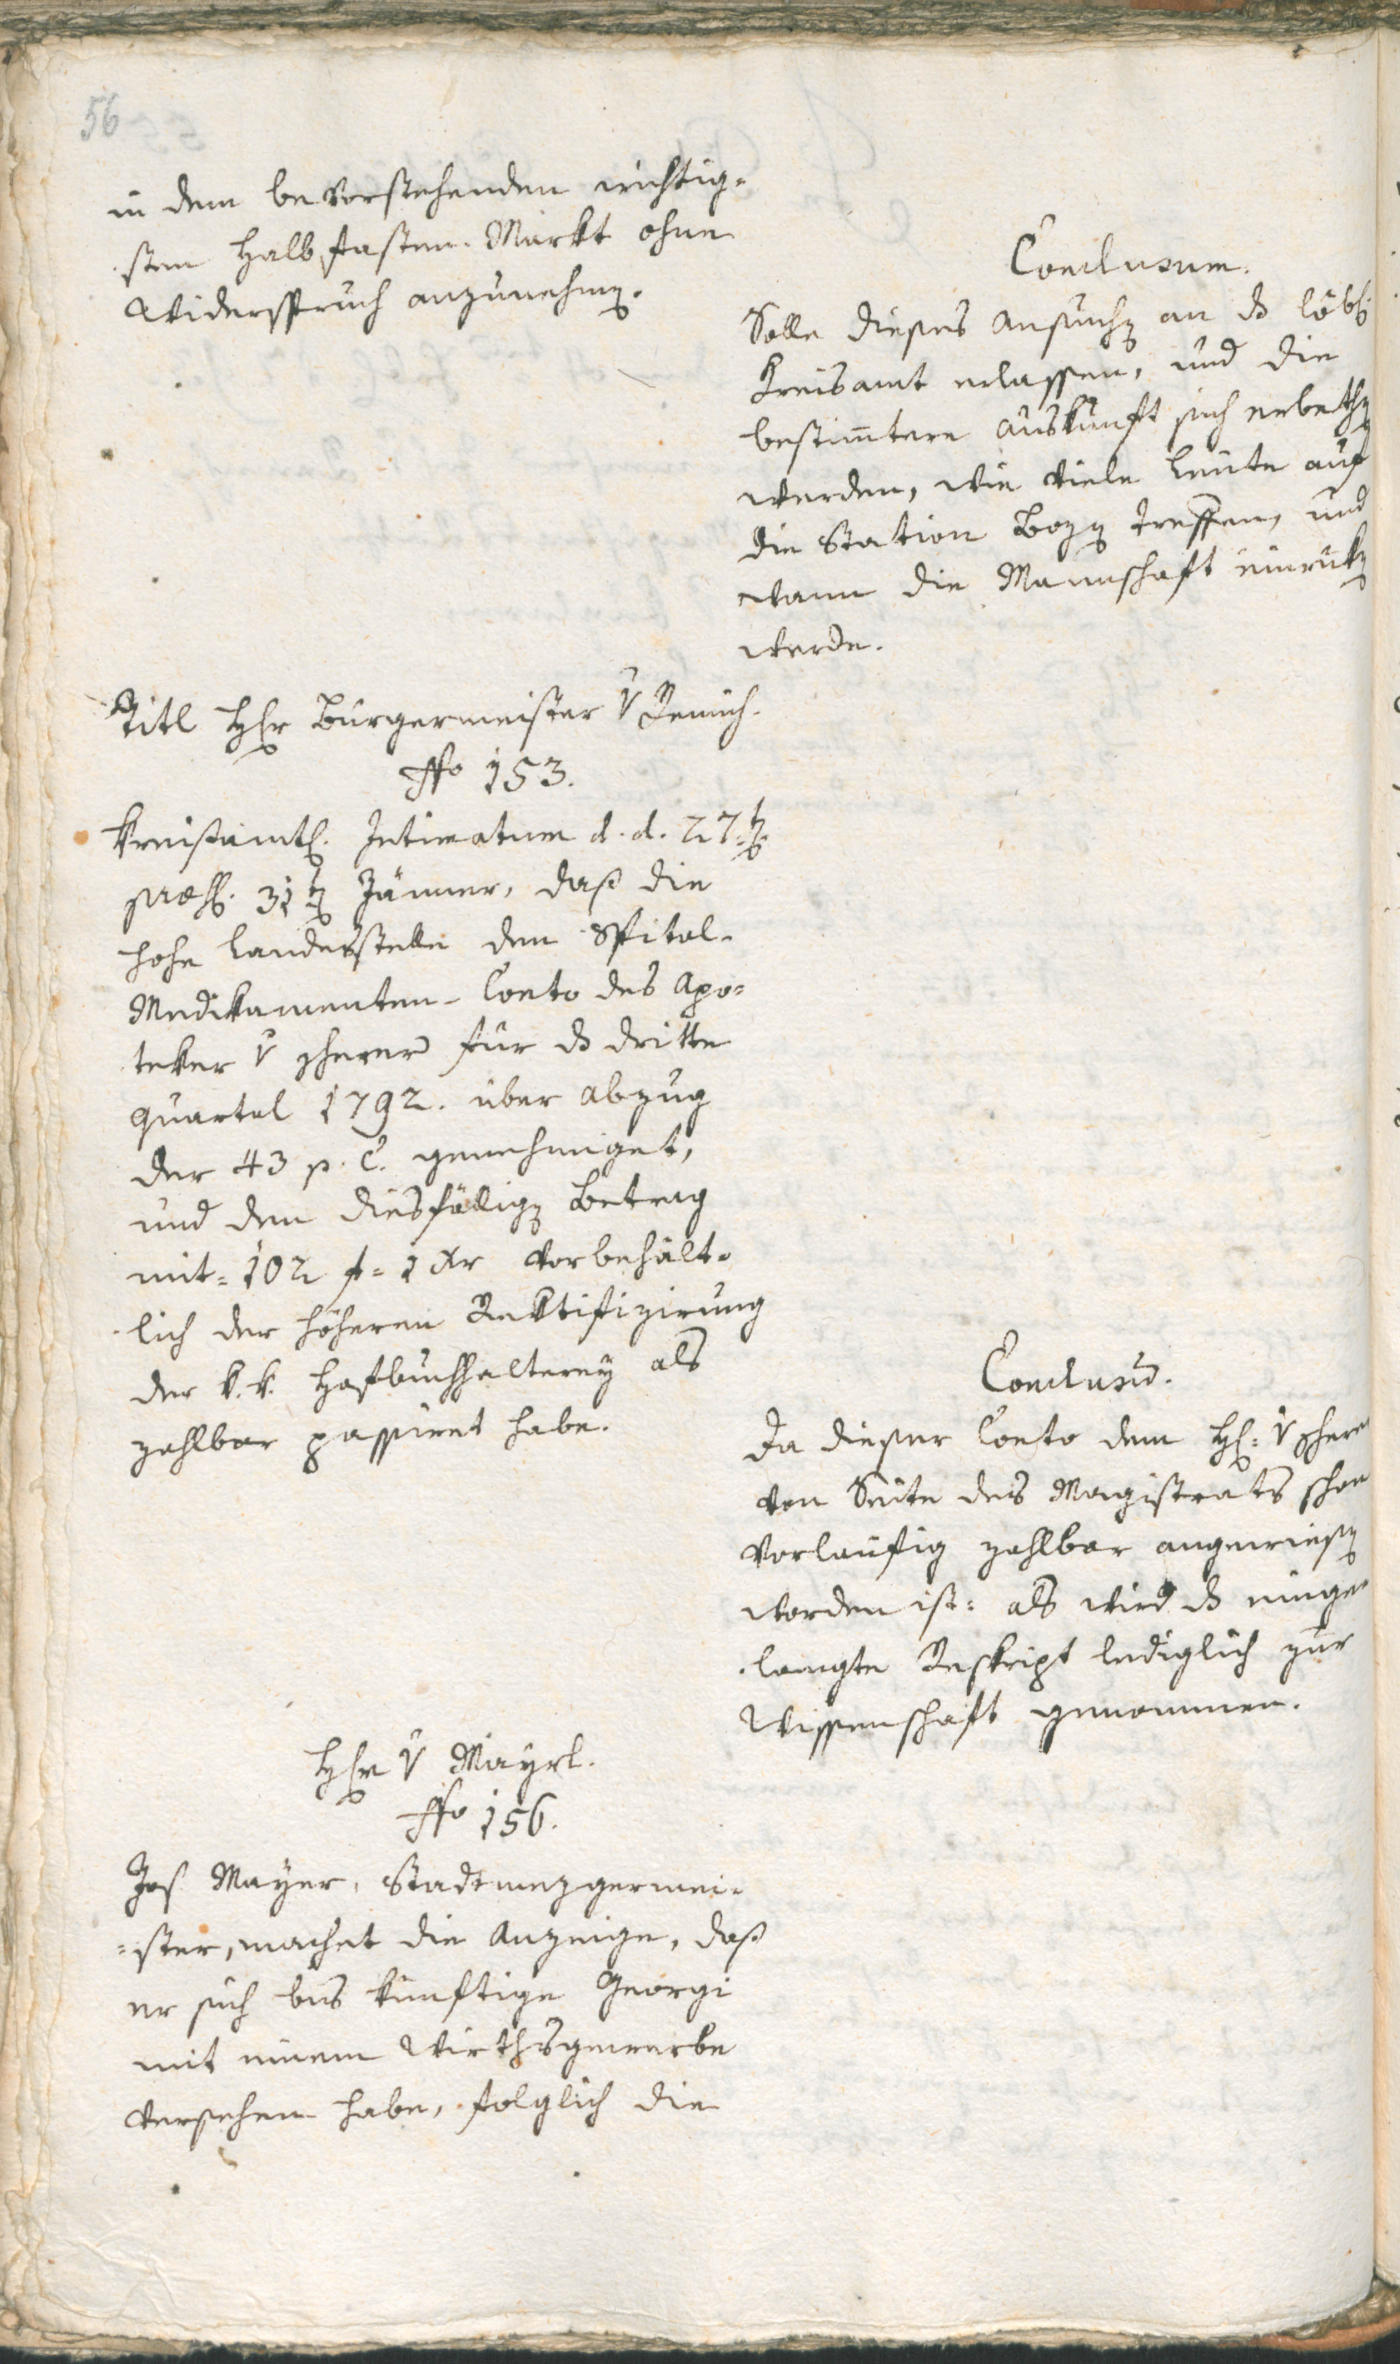 56
in dem bevorstehenden wichtig-
sten Halbfasten-Markt ohne
Widerspruch anzunehmen.
Conclusum.
Solle dieses Ansuchen an das löbl.
Kreisamt erlassen, und die
bestim̄tere Auskunft sich erbethen
werden, wie viele Leute auf
die Station Bozen treffen, und
wann die Mannschaft einrüken
werde.
Titl Herr Burgermeister v
No 153.
Kreisämtl. Intimatum d. d. 27ten
præs. 31ten Jänner, daß die
hohe Landesstelle den Spital-
Medikamenten-Conto des Apo-
teker v Scherer für das dritte
Quartal 1792. über Abzug
der 43 p. C. genehmiget,
und den diesfälligen Betrag
mit = 102 f = 1 Xr vorbehält-
lich der höheren Rektifizirung
der k. k. Hofbuchhalterey als
zahlbar passiret habe.
Conclusū.
Da dieser Conto dem H. v Scherer
von Seite des Magistrats schon
vorläufig zahlbar angewiesen
worden ist: als wird das einge-
langte Reskript lediglich zur
Wissenschaft genommen.
Herr v Mayrl.
No 156.
Jos Mayer, Stadtmezgermei-
=ster, machet die Anzeige, daß
er sich bis künftige Georgi
mit einem Wirthsgewerbe
versehen habe, folglich die